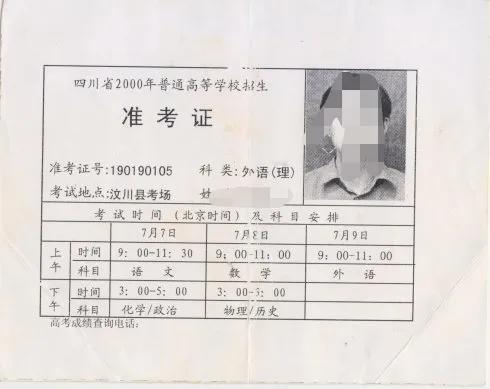 四川省2000年普通高等学校招生
准考证
准考证号:190190105 科 类:外语(理)
考试地点:汶川县考场 姓
考 试 时 间 (北京时间) 及 科 目 安 排
7月7日 7月8日 7月9日
上午 时间 9: 00-11: 30 9: 00-11: 00 9: 00-11: 00
科目 语 文 数 学 外 语
下午 时间 3: 00-5: 00 3: 00-5: 00
科目 化学/政治 物理/历史
高考成绩查询电话: